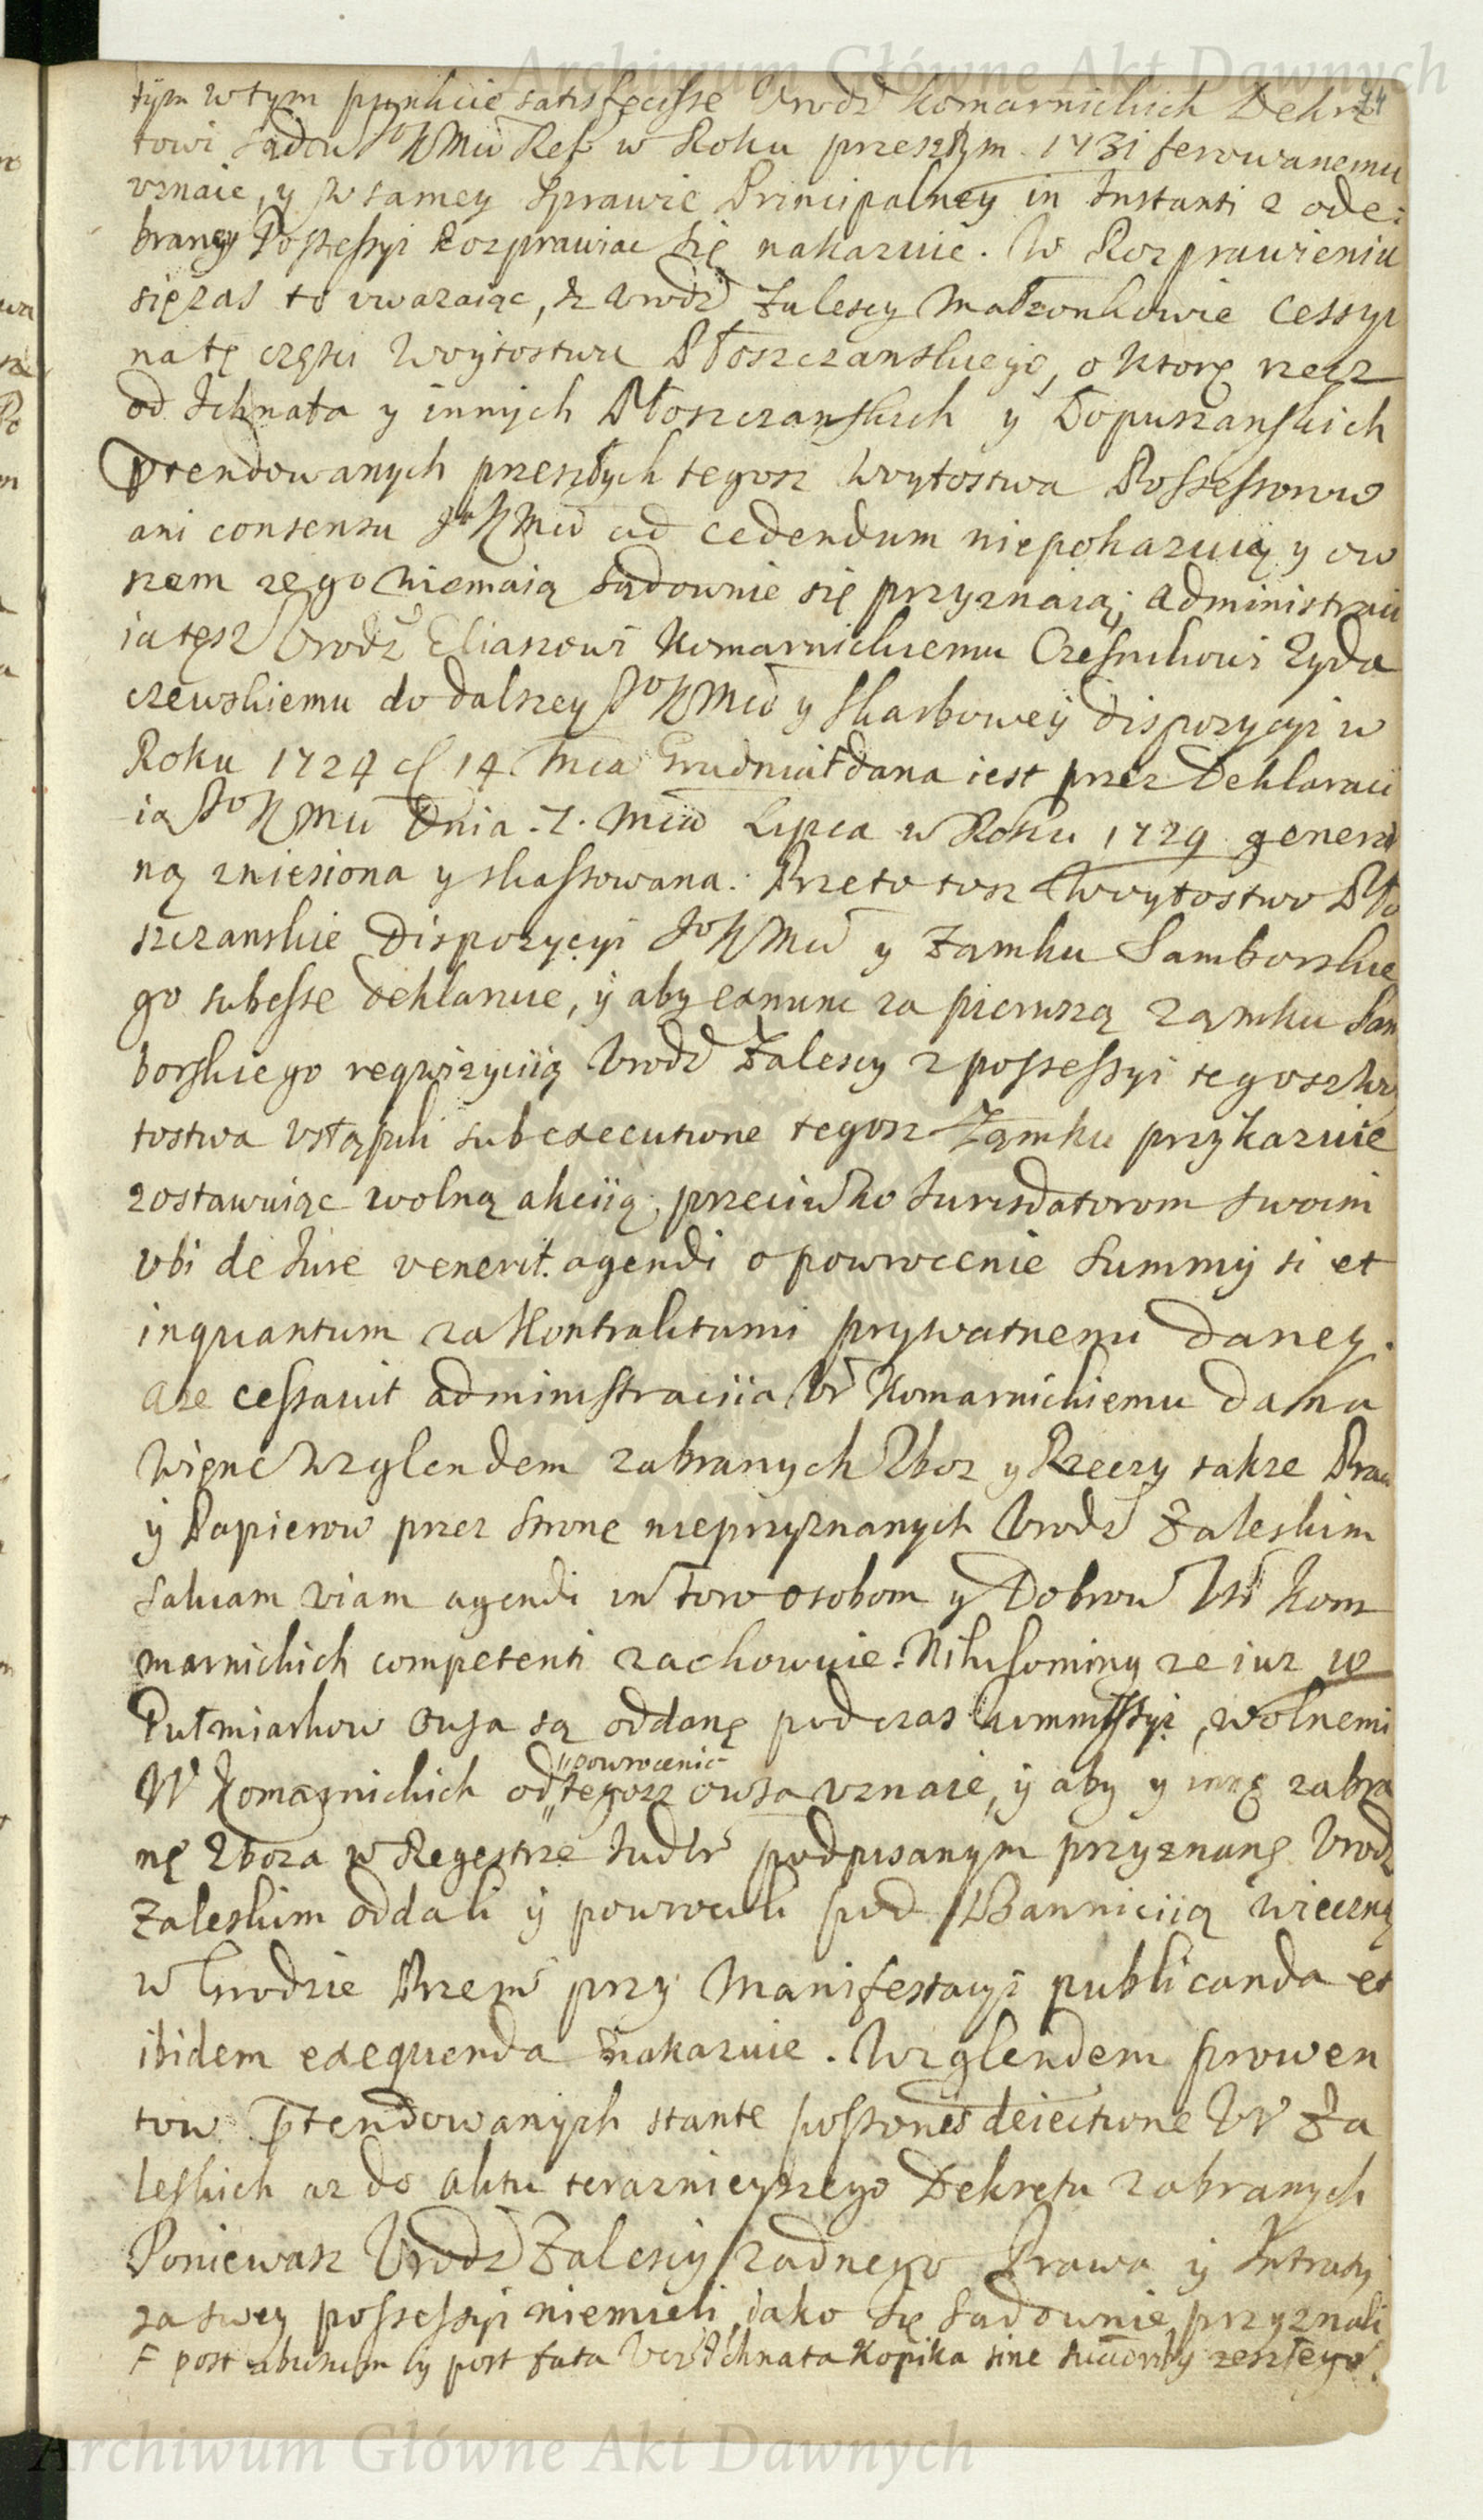 Archiwum Główne Akt Dawnych
24
tym w tym punkcie satisfecisse Urodz Komarnickich Dekre
towi Sądu JoKMci Ref w Roku przeszłym 1731 ferowanemu
vznaie, y w samey Sprawie Principalney in Instanti z ode:
braney Possessyi Rozprawiac się nakazuie. W Rozprawieniu
się zas to uwazaiąc, Iz Urodz Zalescy Małzonkowie Cessyi
na tę częsci Woytostwa Płoszczanskiego, o ktorę rzecz
od Ichnata y innych Płoszczanskich y Łopuszanskich
Prtendowanych przeszłych tegosz Woytostwa Possessorow
ani consensu JoKMci ad cedendum niepokazuią y ow
szem ze go niemaią sądownie się przyznaią; Administrac
ia tesz Urodz Eliaszowi Komarnickiemu Czesnikowi Zyda
czewskiemu do dalszey JoKMci y Skarbowey dispozycyi w
Roku 1724 d 14 Mca Grudnia F dana iest przez Deklarac
ią JoKMci Dnia .7. Mca Lipca w Roku 1729 general
ną zniesiona y skassowana. Przeto tosz Woytostwo Pło
szczanskie Dispozycyi JoKMci y Zamku Samborskie
go subesse deklaruie, y aby exnunc za pierwszą Zamku Sam
borskiego requizyciią Urodz Zalescy z possessyi tegosz Woy
tostwa ustąpili sub executione tegosz Zamku przykazuie
zostawuiąc wolną akciią przeciwko Jurisdatorom swoim
ubi de Jure venerit agendi o powrocenie Summy si et
inquantum za Kontraktami prywatnemi daney.
Aze cessavit administraciia Ur Komarnickiemu dana
Więnc Wzglendem zabranych Zboz y Rzeczy takze Praw
y Papierow przez Stronę nieprzyznanych Urodz Zaleskim
salvam viam agendi in foro osobom y Dobrom Ur Kom
marnickich competenti zachowuie. Nihilominq ze iuz w
Pułmiarkow Owsa są oddanę podczas Kommissyi, wolnemi
W Komarnickich od "powrocenia" tegosz owsa uznaie, y aby y innę zabra
nę Zboza w Regestrze Judlr podpisanym przyznanę Urodz
Zaleskim oddali y powrocili pod Banniciią wieczną
w Grodzie Przem przy Manifestacyi publicanda et
ibidem exequenda nakazuie. Wzglendem prowen
tow prtendowanych stante possonis deiectione Ur Za
leskich az do aktu teraznieyszego Dekretu zabranych
Poniewasz Urodz Zalescy zadnego Prawa y Intraty
za swey possessyi niemieli, iako się sądownie przyznali
F post abusum y post fata Ur Ichnata Kopika sine succorib zeszłego.
Archiwum Główne Akt Dawnych